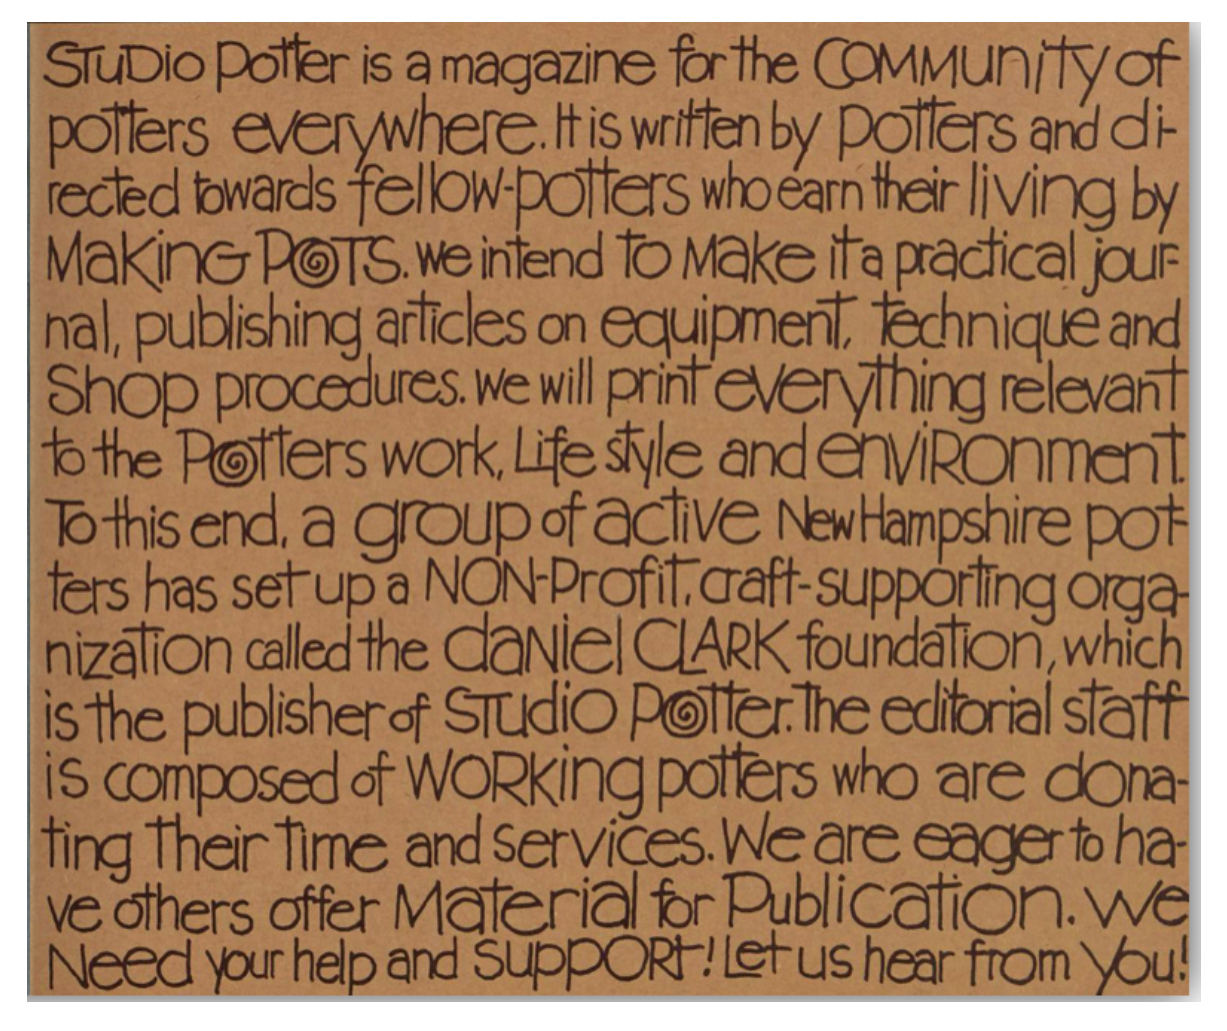 STuDio Potter is a magazine for the COMMUniTy of
potters everywhere. It is written by Potters and di-
rected towards fellow-potters who earn their living by
MaKinG POTS. We intend To Make it a practical jour-
nal, publishing articles on equipment, Technique and
Shop procedures. We will print everything relevant
to the Potters work, Life style and enviRonment.
To this end, a group of active New Hampshire pot-
ters has set up a NON-Profit, craft-supporting orga-
nization called the daNiel CLARK foundation, which
is the publisher of STudio Potter. The editorial staff
is composed of WORKing potters who are dona-
ting Their Time and services. We are eager to ha-
ve others offer Material for Publication. We
Need your help and SuppORt! Let us hear from You!